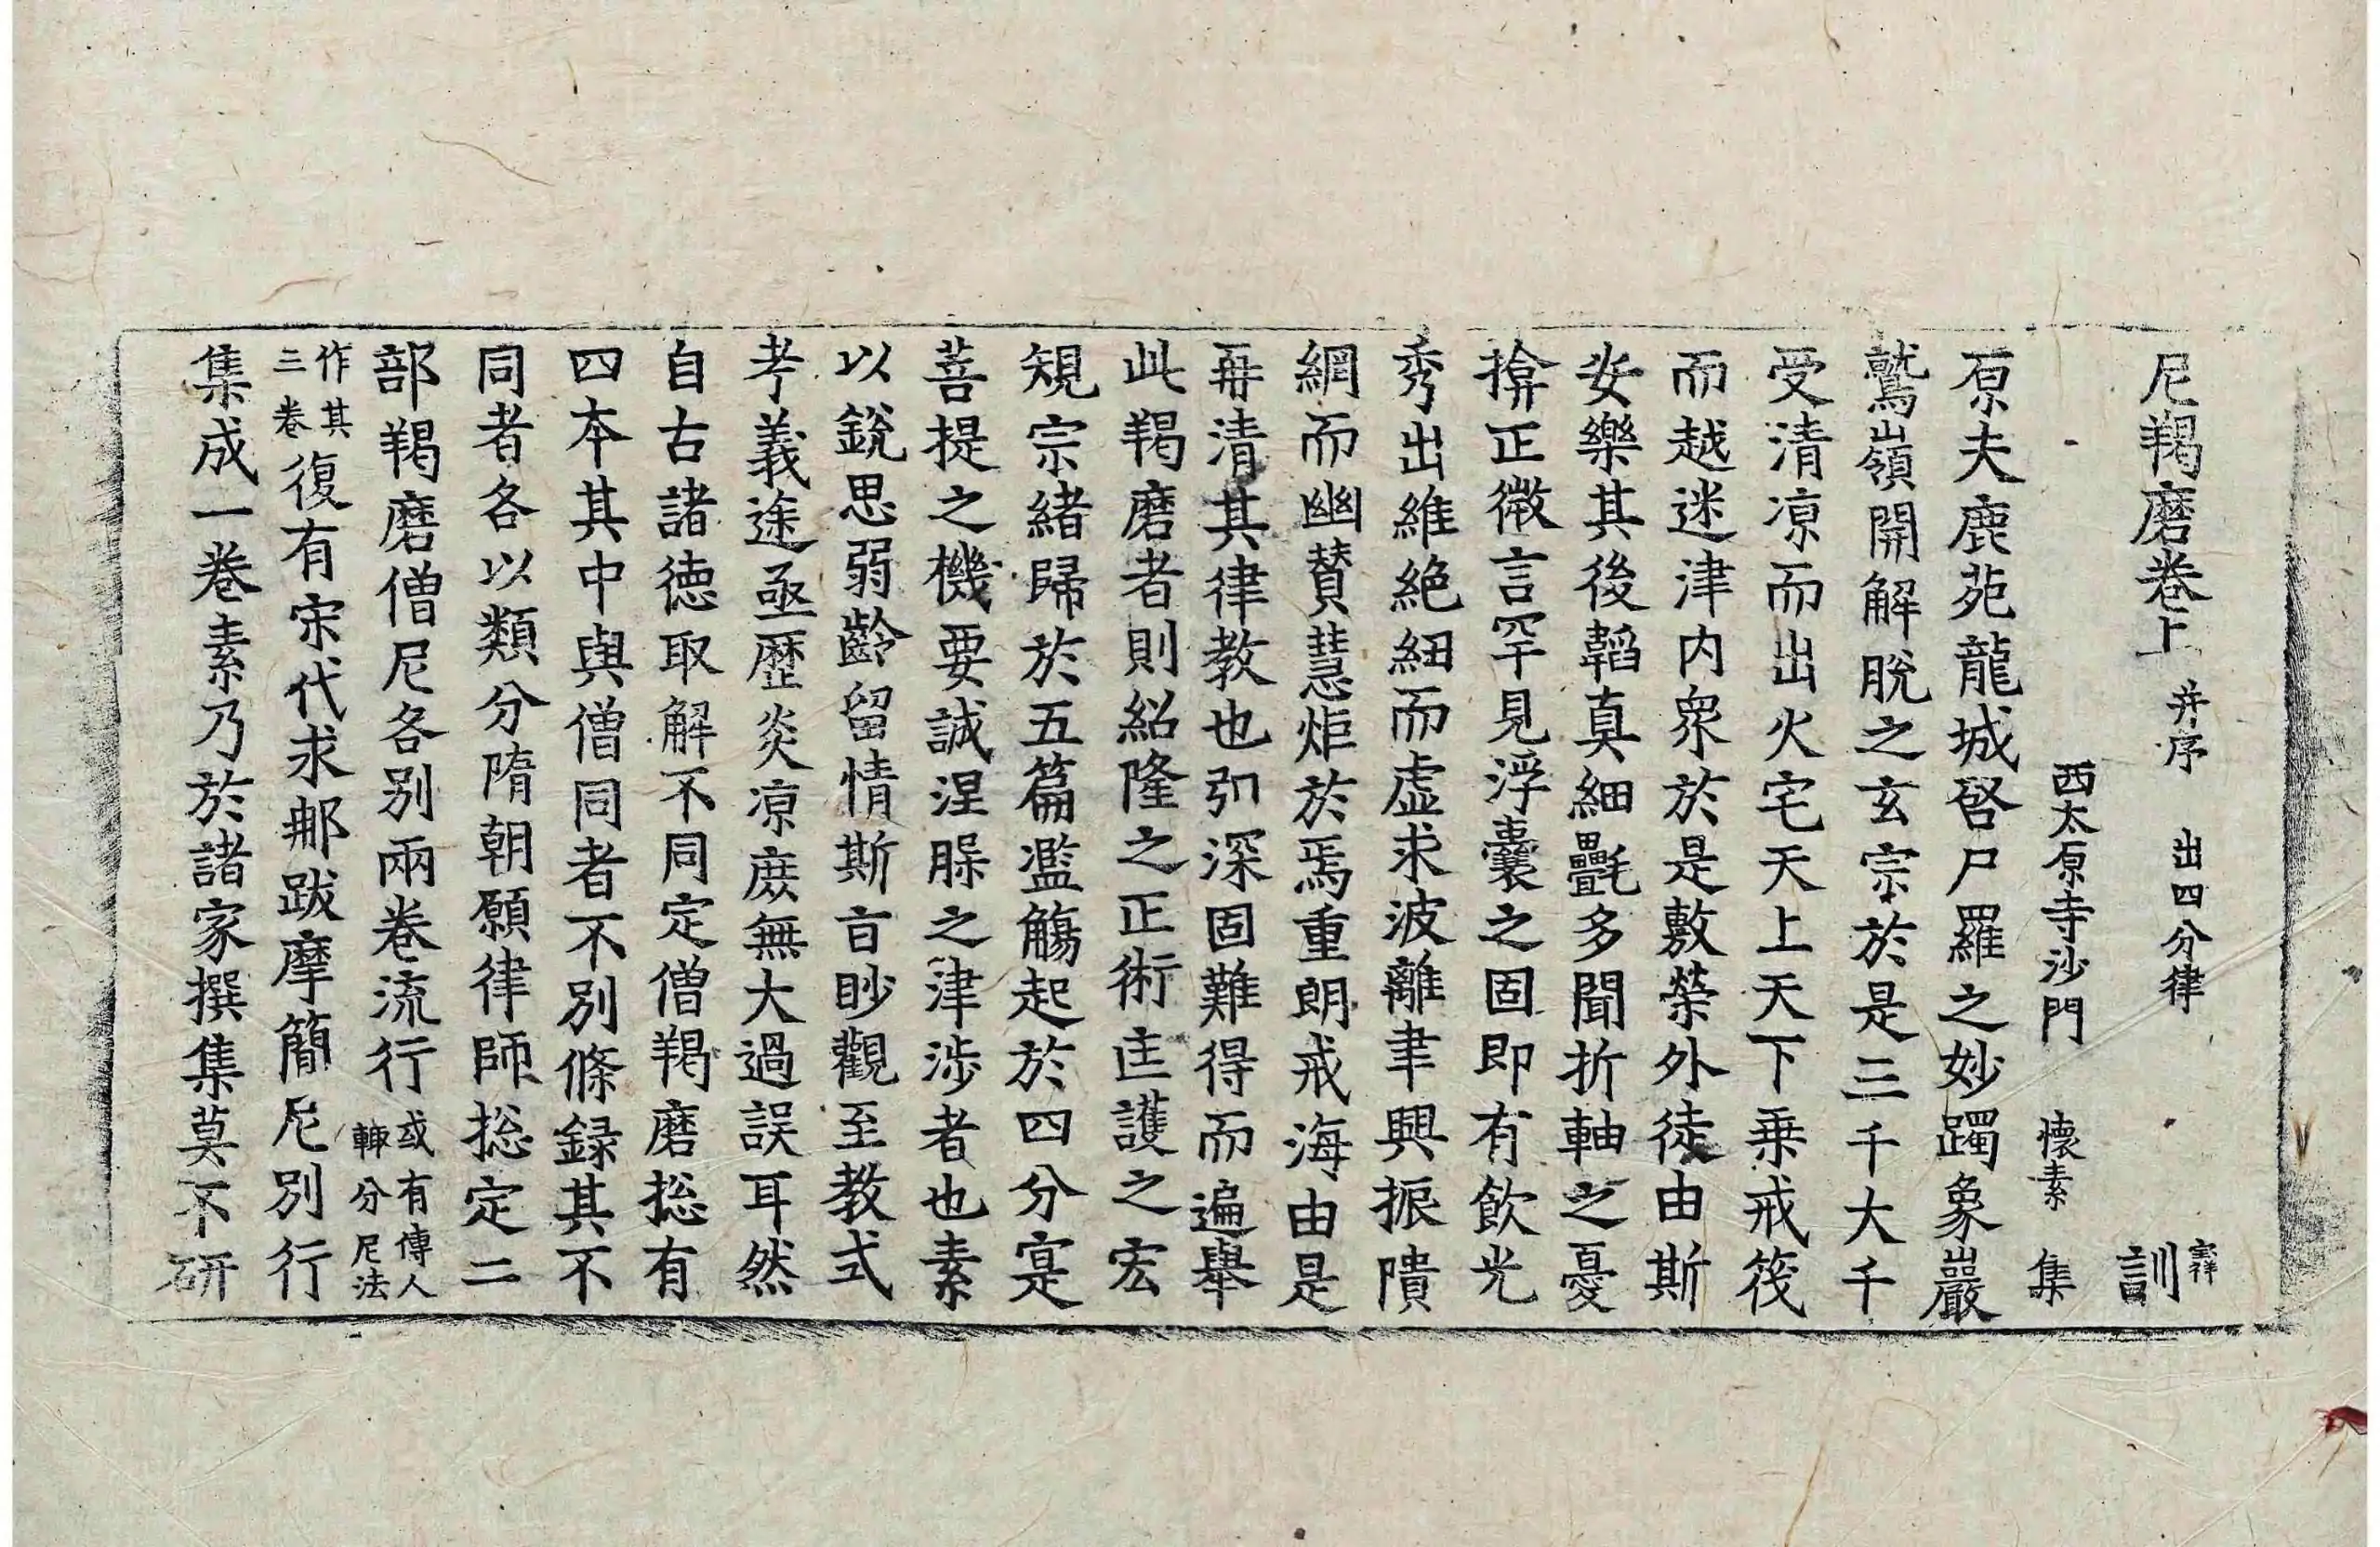 尼羯磨卷上 并序 出四分律 訓
西太原寺沙門 懷素 集
原夫鹿苑龍城啓尸羅之妙躅象巖
鷲嶺開解脫之玄宗於是三千大千
受清凉而出火宅天上天下乗戒筏
而越迷津内衆於是敷榮外徒由斯
安樂其後韜真細㲲多聞折軸之憂
揜正微言罕見浮囊之固即有飲光
秀出維絶細而虛求波離聿興振隤
網而幽賛慧炬於焉重朗戒海由是
再清其律教也弘深固難得而遍舉
此羯磨者則紹隆之正術匡護之宏
規宗緒歸於五篇濫觴起於四分寔
菩提之機要誠涅槃之津涉者也素
以銳思弱齡留情斯旨眇觀至教式
考義途亟歷炎凉庶無大過誤耳然
自古諸德取解不同定僧羯磨揔有
四本其中與僧同者不別條録其不
同者各以類分隋朝願律師揔定二
部羯磨僧尼各別兩卷流行 或有傳人輙分尼法
作其三卷 復有宋代求那跋摩簡尼別行
集成一卷素乃於諸家撰集莫不研